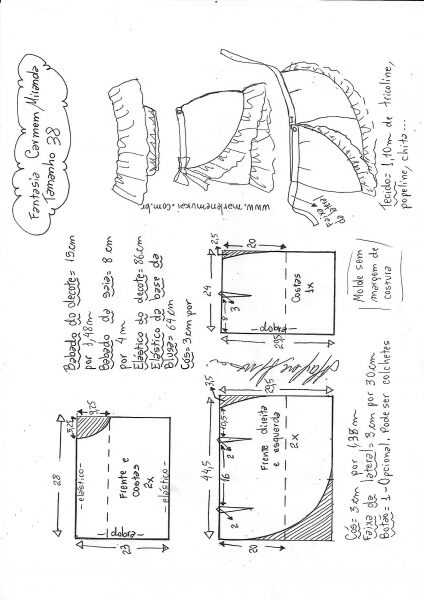 Fantasia Carmem Miranda
Tamanho 38
www.marlenemukai.com.br
Faixa
da lateral
Tecido = 1,10m de tricoline,
popeline, chita...
Babado do decote = 15cm
por 1,48m
Babado da saia = 8 cm
por 4m
Elástico do decote = 86cm
Elástico da base da
blusa = 64cm
Cós = 3 cm por
2,5
20
24
3
8
Costas
1x
- dobra -
29,5
Molde sem
margem de
costura
9,25
9,25
28
- elástico -
Frente e
costas
2x
- elástico -
- dobra -
23
2,5
29,5
10,5
2
16
2
44,5
Frente direita
e esquerda
2x
20
Cós = 3 cm por 1,38m
Faixa da lateral = 9 cm por 30cm
Botão = 1 - Opcional. Pode ser colchetes